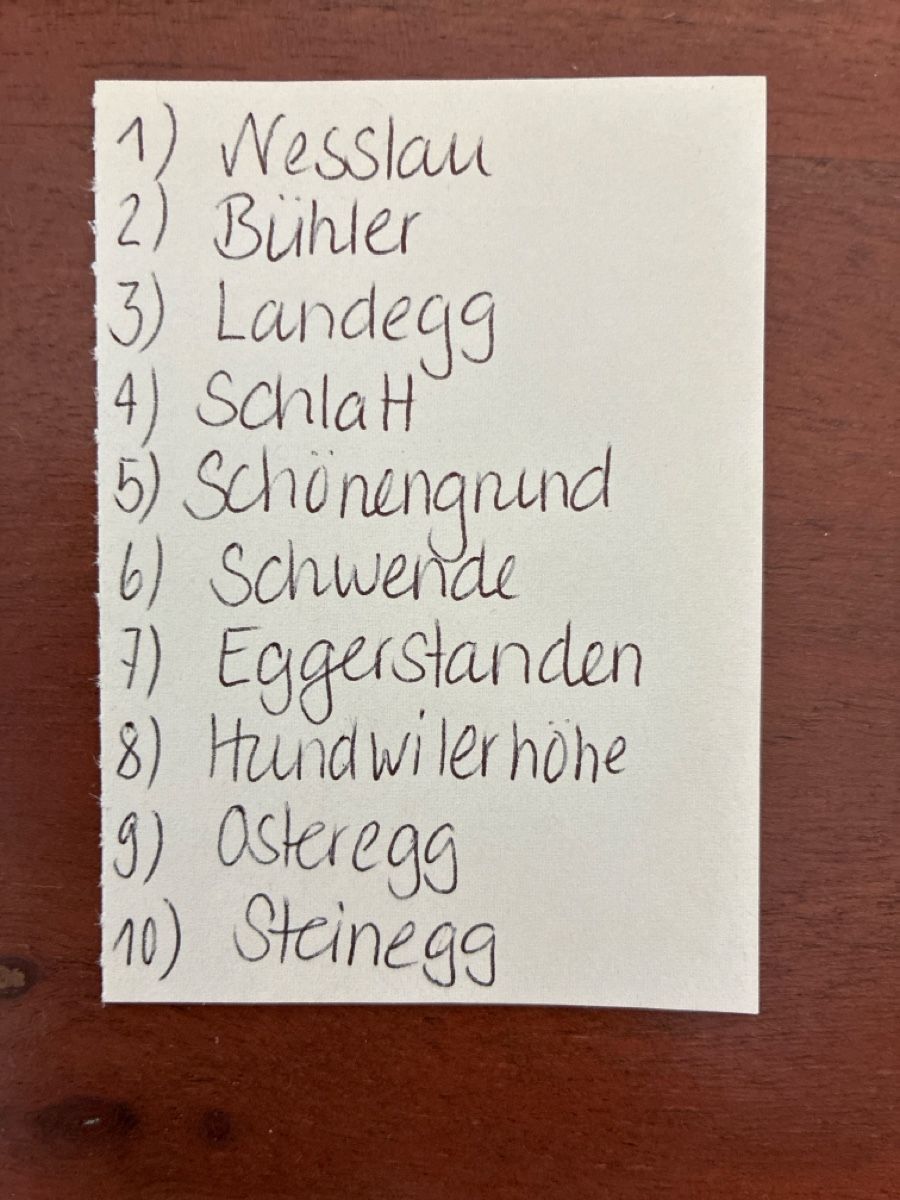 1) Nesslau
2) Bühler
3) Landegg
4) Schlatt
5) Schönengrund
6) Schwende
7) Eggerstanden
8) Hundwilerhöhe
9) Osteregg
10) Steinegg